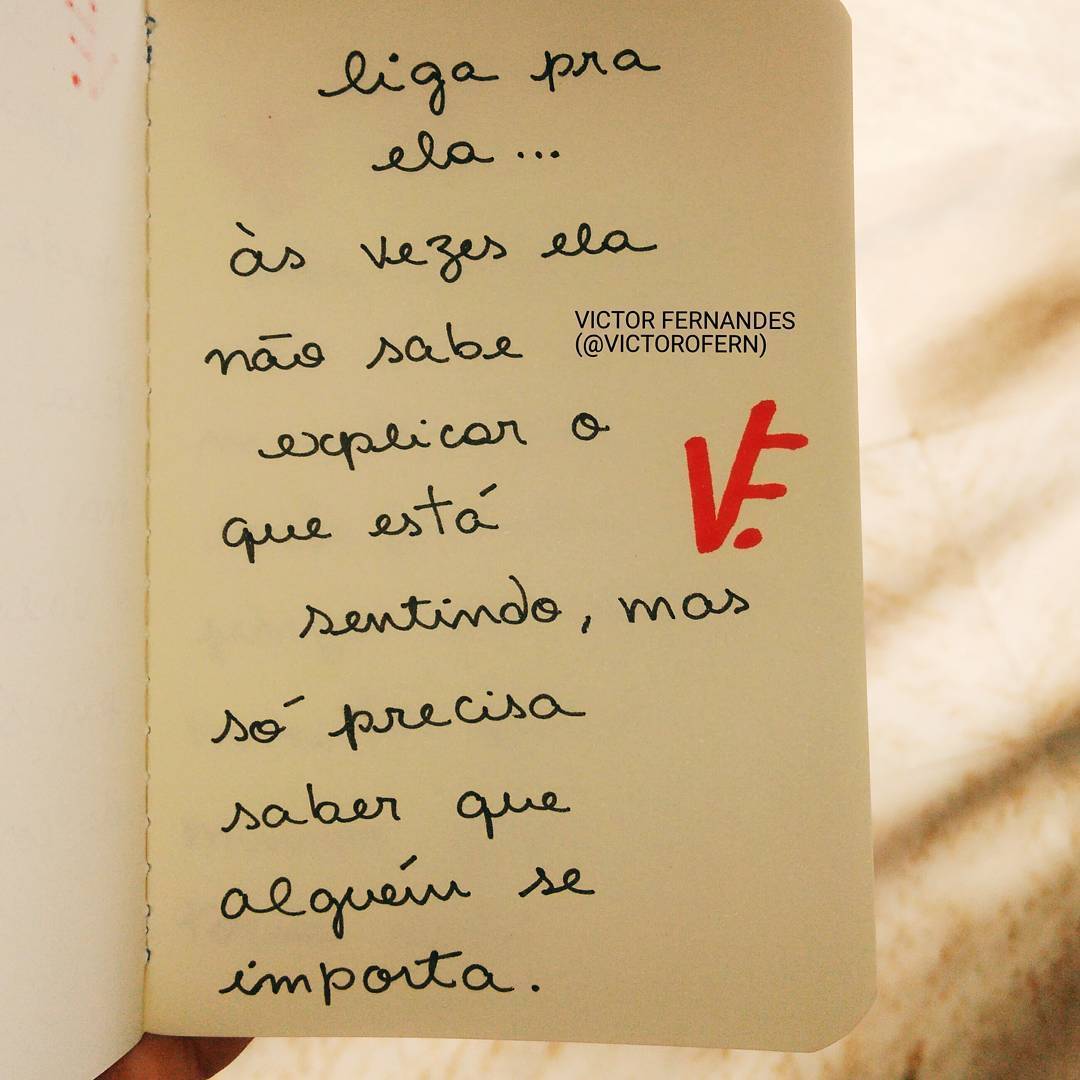 liga pra
ela...
às vezes ela
não sabe
VICTOR FERNANDES
(@VICTOROFERN)
explicar o
VF.
que está
sentindo, mas
só precisa
saber que
alguém se
importa.